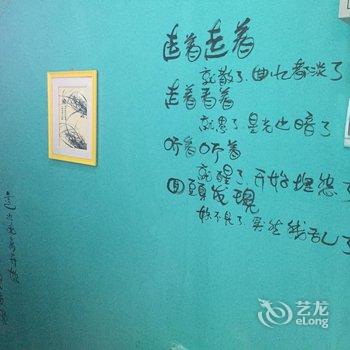 走着走着
就散了,回忆都淡了
走着看着
就累了,星光也暗了
听着听着
就醒了,开始埋怨了
回頭发現
妳不見了,突然我乱了
艺龙
eLong